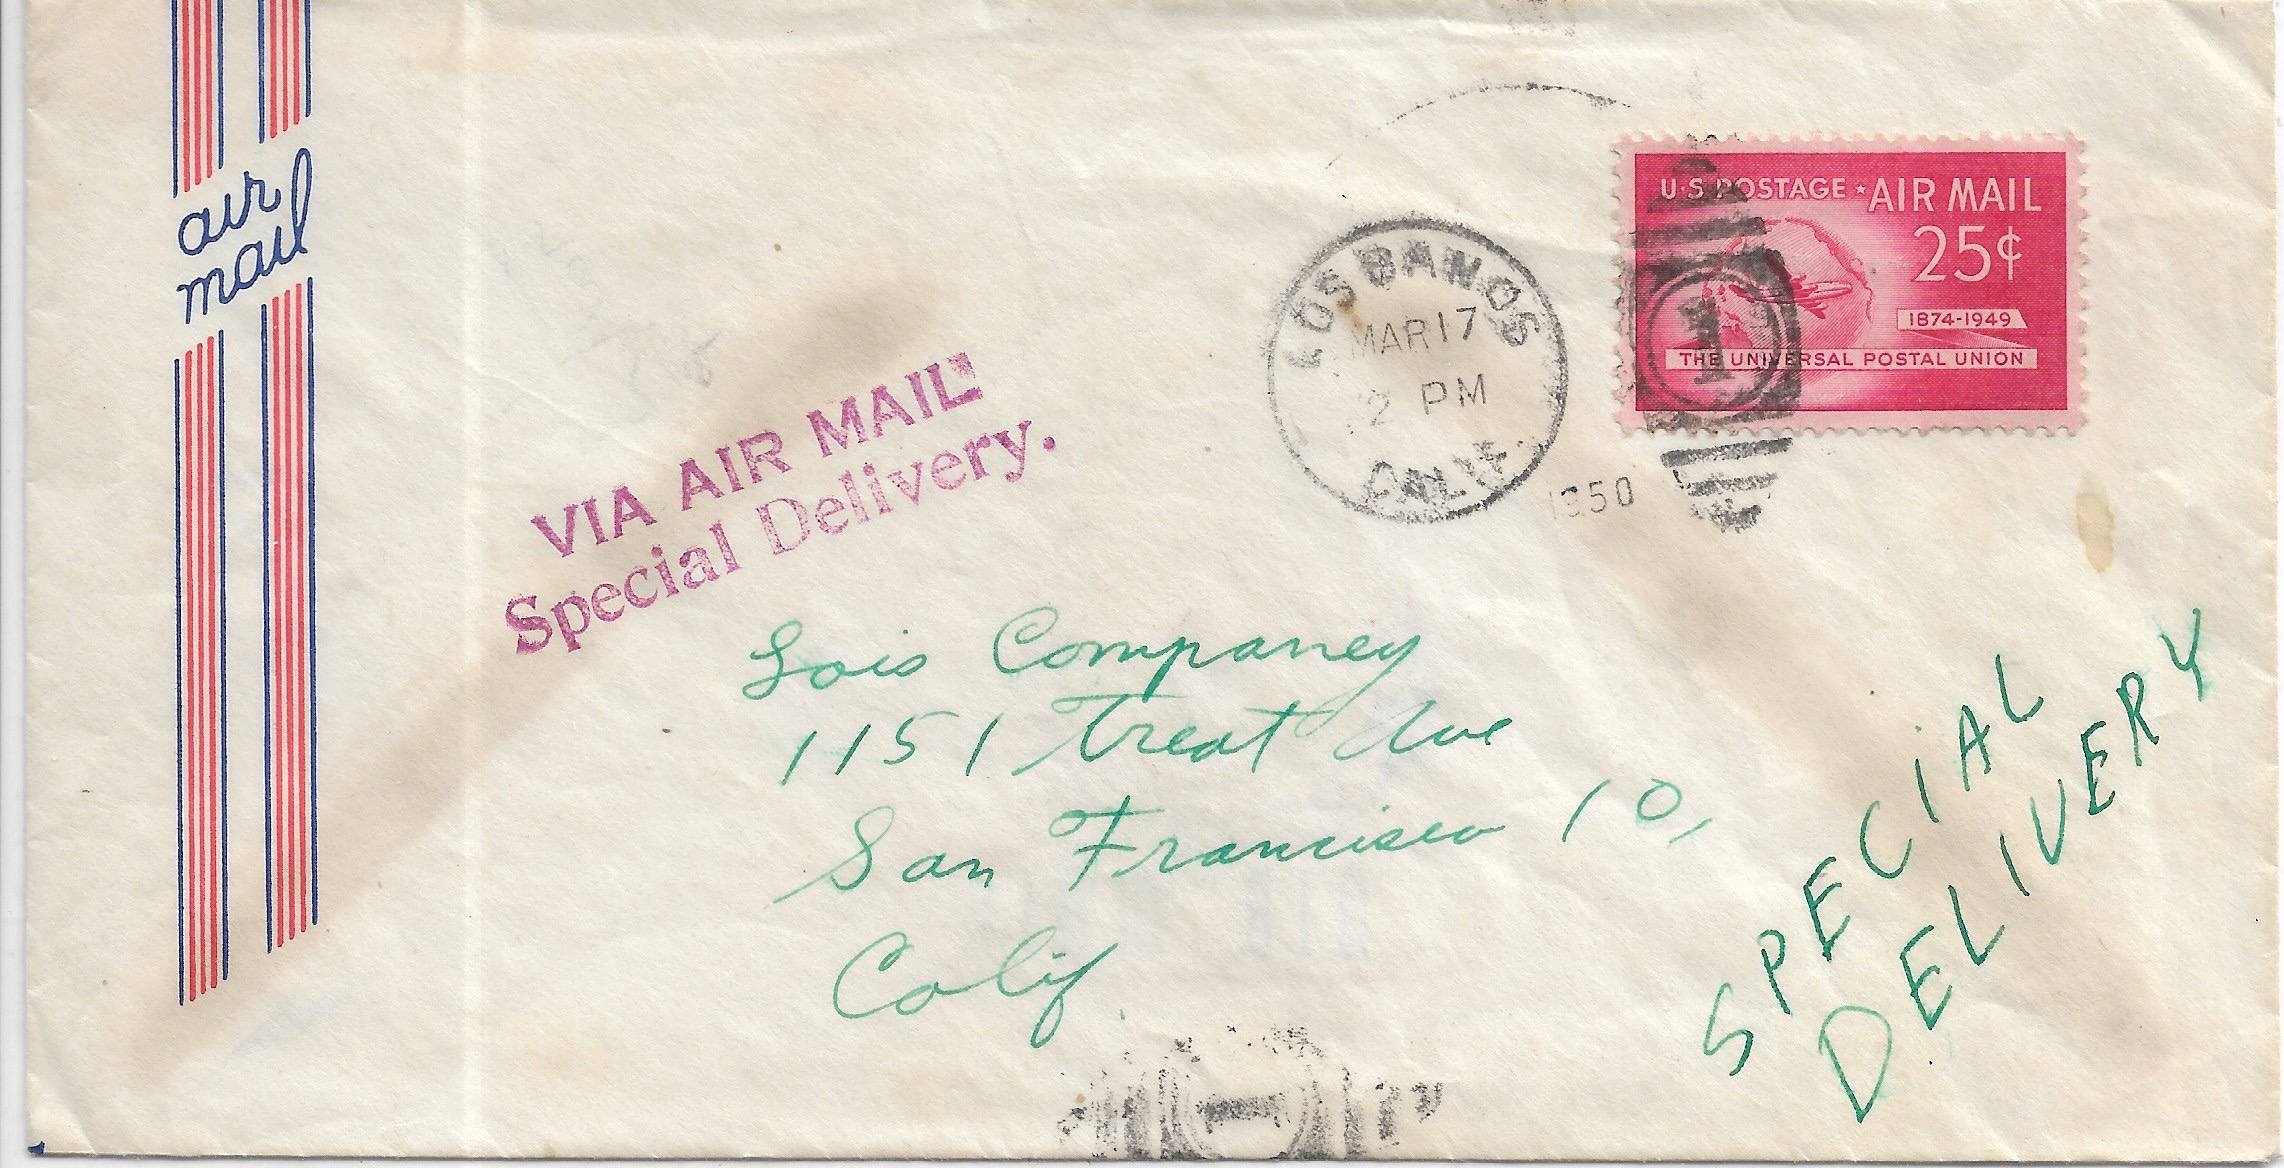 air
mail
U·S POSTAGE ★ AIR MAIL
25¢
1874-1949
THE UNIVERSAL POSTAL UNION
LOS BANOS
MAR 17
2 PM
1950
CALIF.
1
VIA AIR MAIL
Special Delivery.
Lois Companey
1151 Treat Ave
San Francisco 10,
Calif.
SPECIAL
DELIVERY